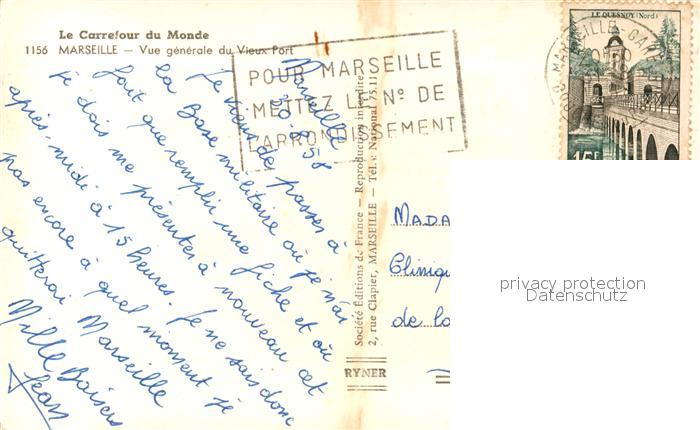 Le Carrefour du Monde
1156 MARSEILLE — Vue générale du Vieux Port
POUR MARSEILLE
METTEZ LE Nº DE
L'ARRONDISSEMENT
LE QUESNOY (Nord)
15F
Marseille
58
Je viens de passer à
la Base militaire où je n'ai
fait que remplir une fiche et où
je dois me présenter à nouveau cet
après-midi à 15 heures. Je ne sais donc
pas encore à quel moment je
quitterai Marseille
Mille Baisers
Jean
Société Éditions de France — Reproduction Interdite
2, rue Clapier, MARSEILLE — Tél.: National 75.11
RYNER
MADA
Cliniq
de la
privacy protection
Datenschutz